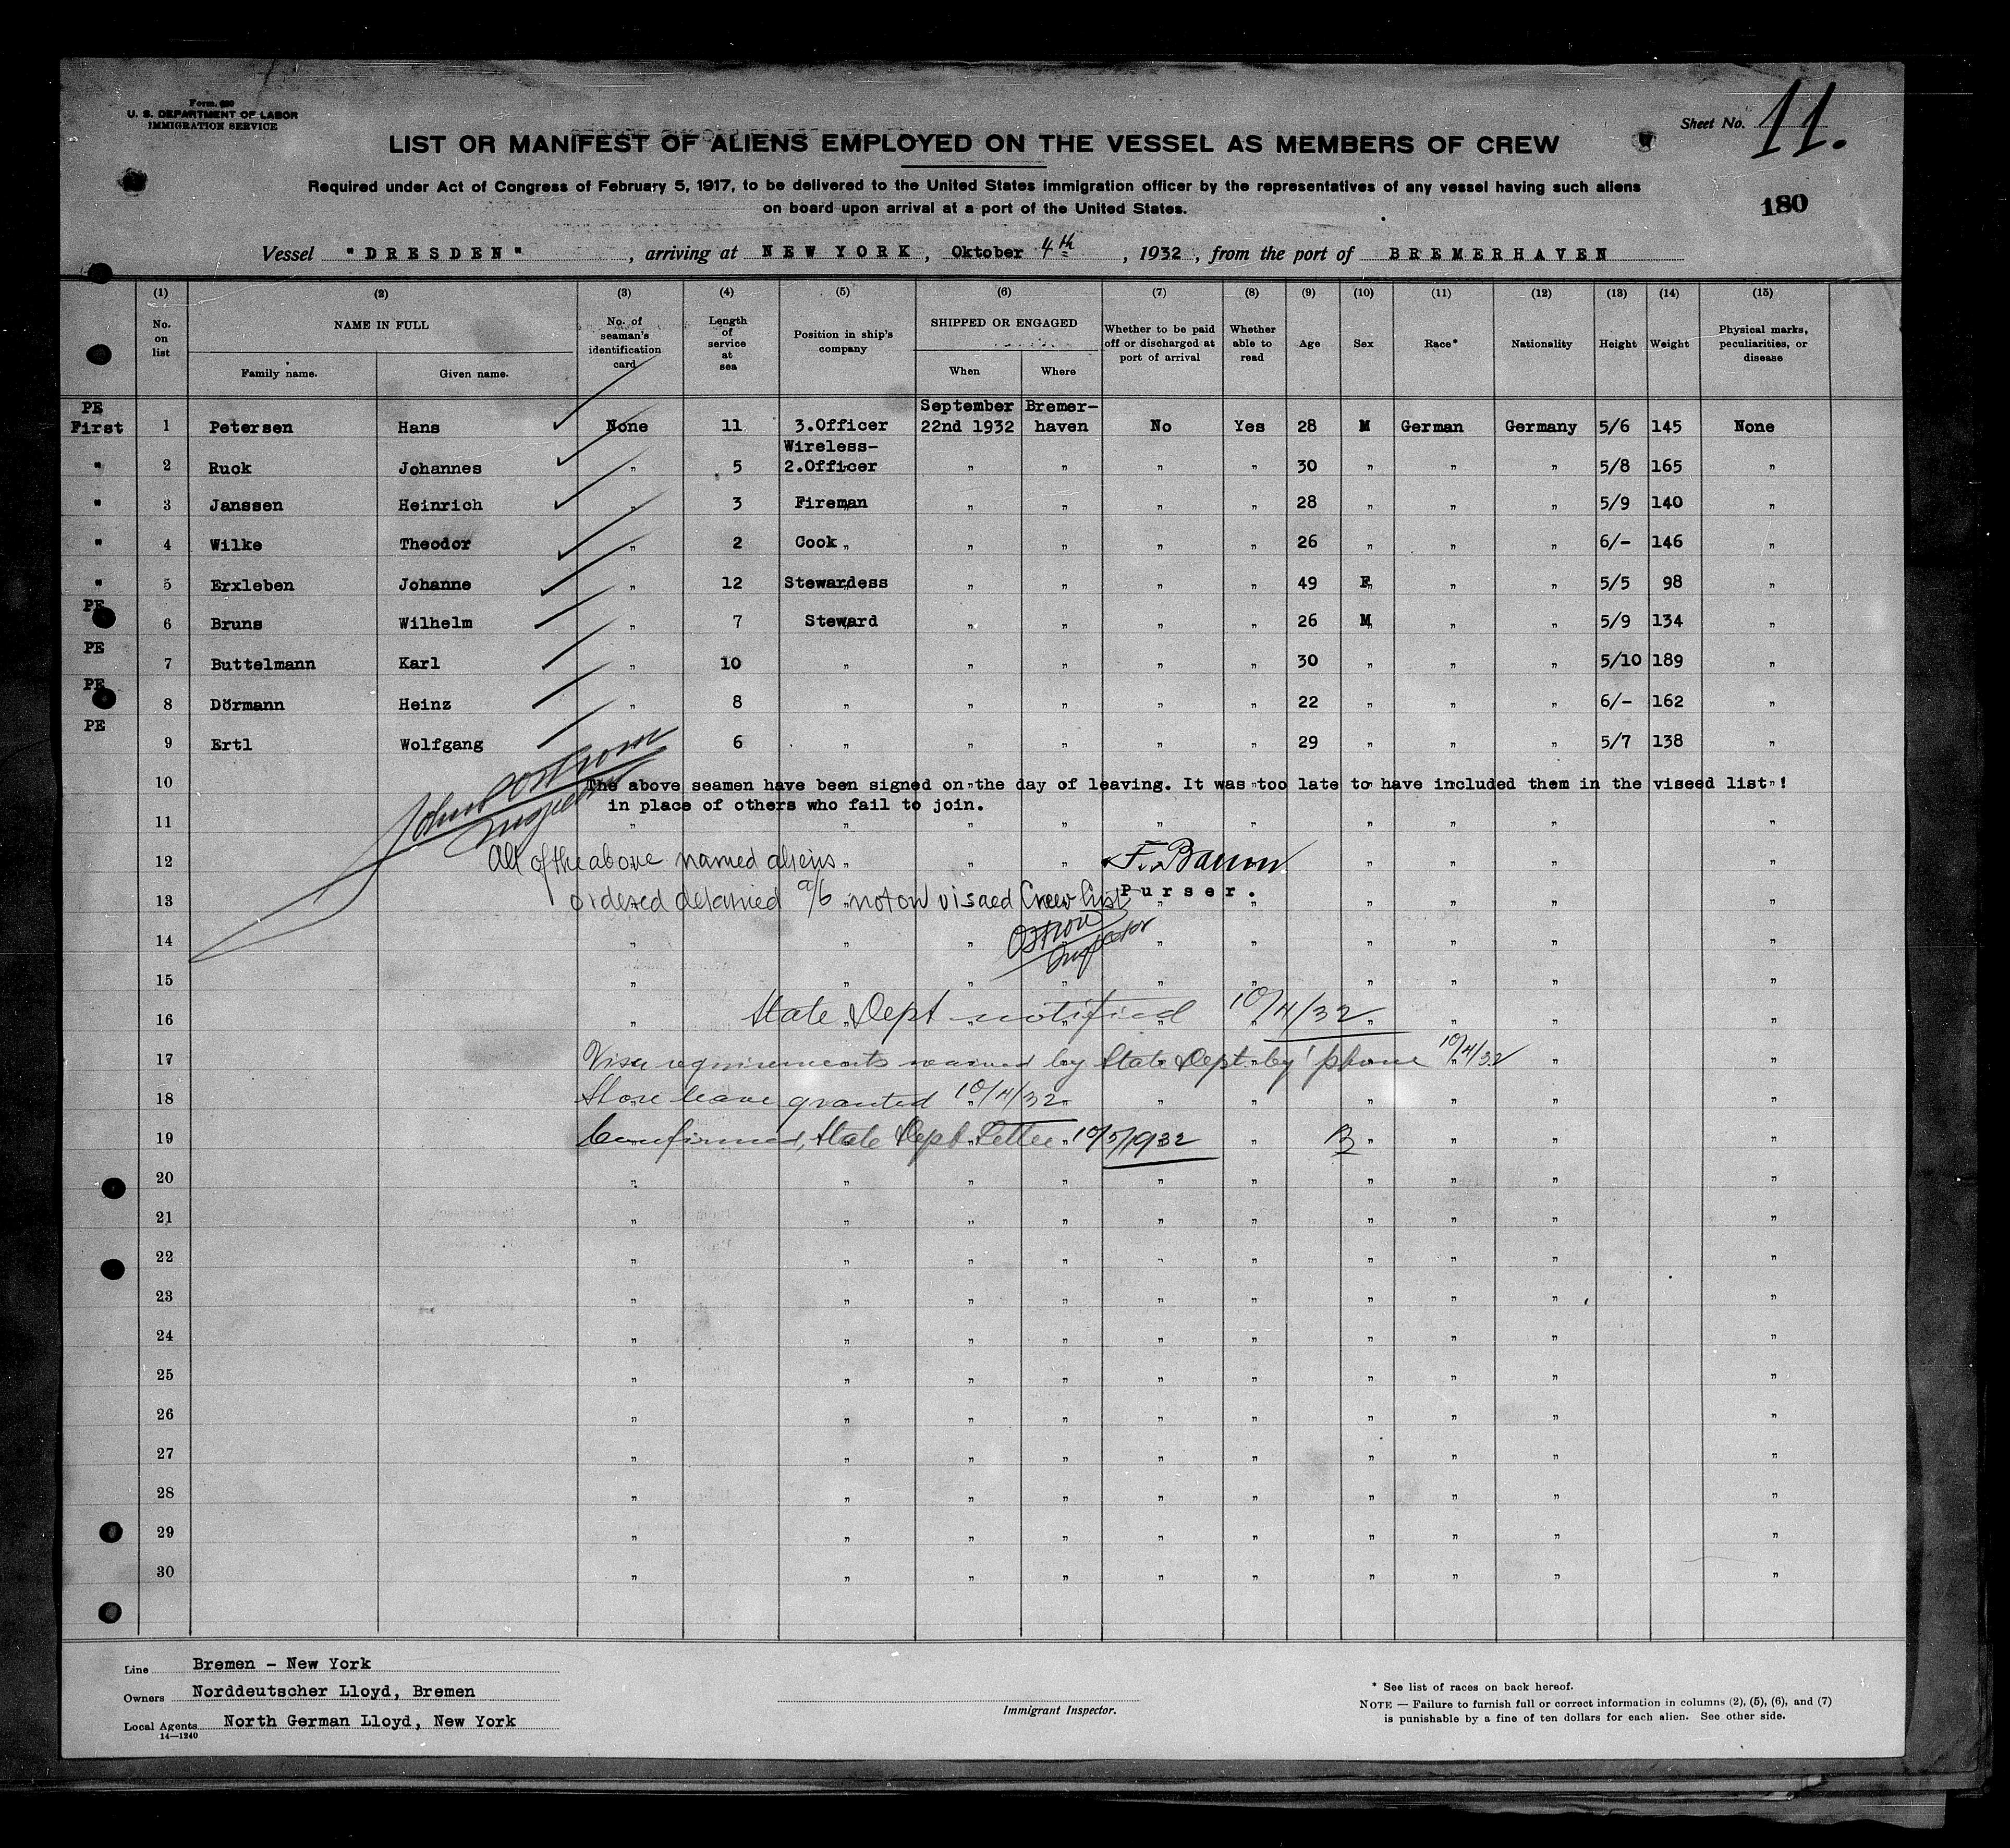 Form. 680
U. S. DEPARTMENT OF LABOR
IMMIGRATION SERVICE
Sheet No. 11.
LIST OR MANIFEST OF ALIENS EMPLOYED ON THE VESSEL AS MEMBERS OF CREW
Required under Act of Congress of February 5, 1917, to be delivered to the United States immigration officer by the representatives of any vessel having such aliens
on board upon arrival at a port of the United States.
180
Vessel "DRESDEN", arriving at NEW YORK, Oktober 4th, 1932, from the port of BREMERHAVEN
(1) (2) (3) (4) (5) (6) (7) (8) (9) (10) (11) (12) (13) (14) (15)
No. on list NAME IN FULL Family name. Given name. No. of seaman's identification card Length of service at sea Position in ship's company SHIPPED OR ENGAGED When Where Whether to be paid off or discharged at port of arrival Whether able to read Age Sex Race* Nationality Height Weight Physical marks, peculiarities, or disease
PE First 1 Petersen Hans None 11 3.Officer September 22nd 1932 Bremer-haven No Yes 28 M German Germany 5/6 145 None
" 2 Ruok Johannes " 5 Wireless-2.Officer " " " " 30 " " " 5/8 165 "
" 3 Janssen Heinrich " 3 Fireman " " " " 28 " " " 5/9 140 "
" 4 Wilke Theodor " 2 Cook " " " " 26 " " " 6/- 146 "
" 5 Erxleben Johanne " 12 Stewardess " " " " 49 F " " 5/5 98 "
PE 6 Bruns Wilhelm " 7 Steward " " " " 26 M " " 5/9 134 "
PE 7 Buttelmann Karl " 10 " " " " " 30 " " " 5/10 189 "
PE 8 Dörmann Heinz " 8 " " " " " 22 " " " 6/- 162 "
PE 9 Ertl Wolfgang " 6 " " " " " 29 " " " 5/7 138 "
10 The above seamen have been signed on the day of leaving. It was too late to have included them in the viseed list !
in place of others who fail to join.
Inspector
11
12 All of the above named aliens
F. Baum
13 ordered detained a/c not on visaed Crew list
Purser.
14 Ostrow
Inspector
15
16 State Dept notified 10/4/32
17 Visa requirements waived by State Dept by 'phone 10/4/32
18 Shore leave granted 10/4/32
19 Confirmed, State Dept Letter 10/5/1932 B
20
21
22
23
24
25
26
27
28
29
30
Line Bremen - New York
Owners Norddeutscher Lloyd, Bremen
Local Agents North German Lloyd, New York
14—1240
Immigrant Inspector.
* See list of races on back hereof.
NOTE — Failure to furnish full or correct information in columns (2), (5), (6), and (7)
is punishable by a fine of ten dollars for each alien. See other side.